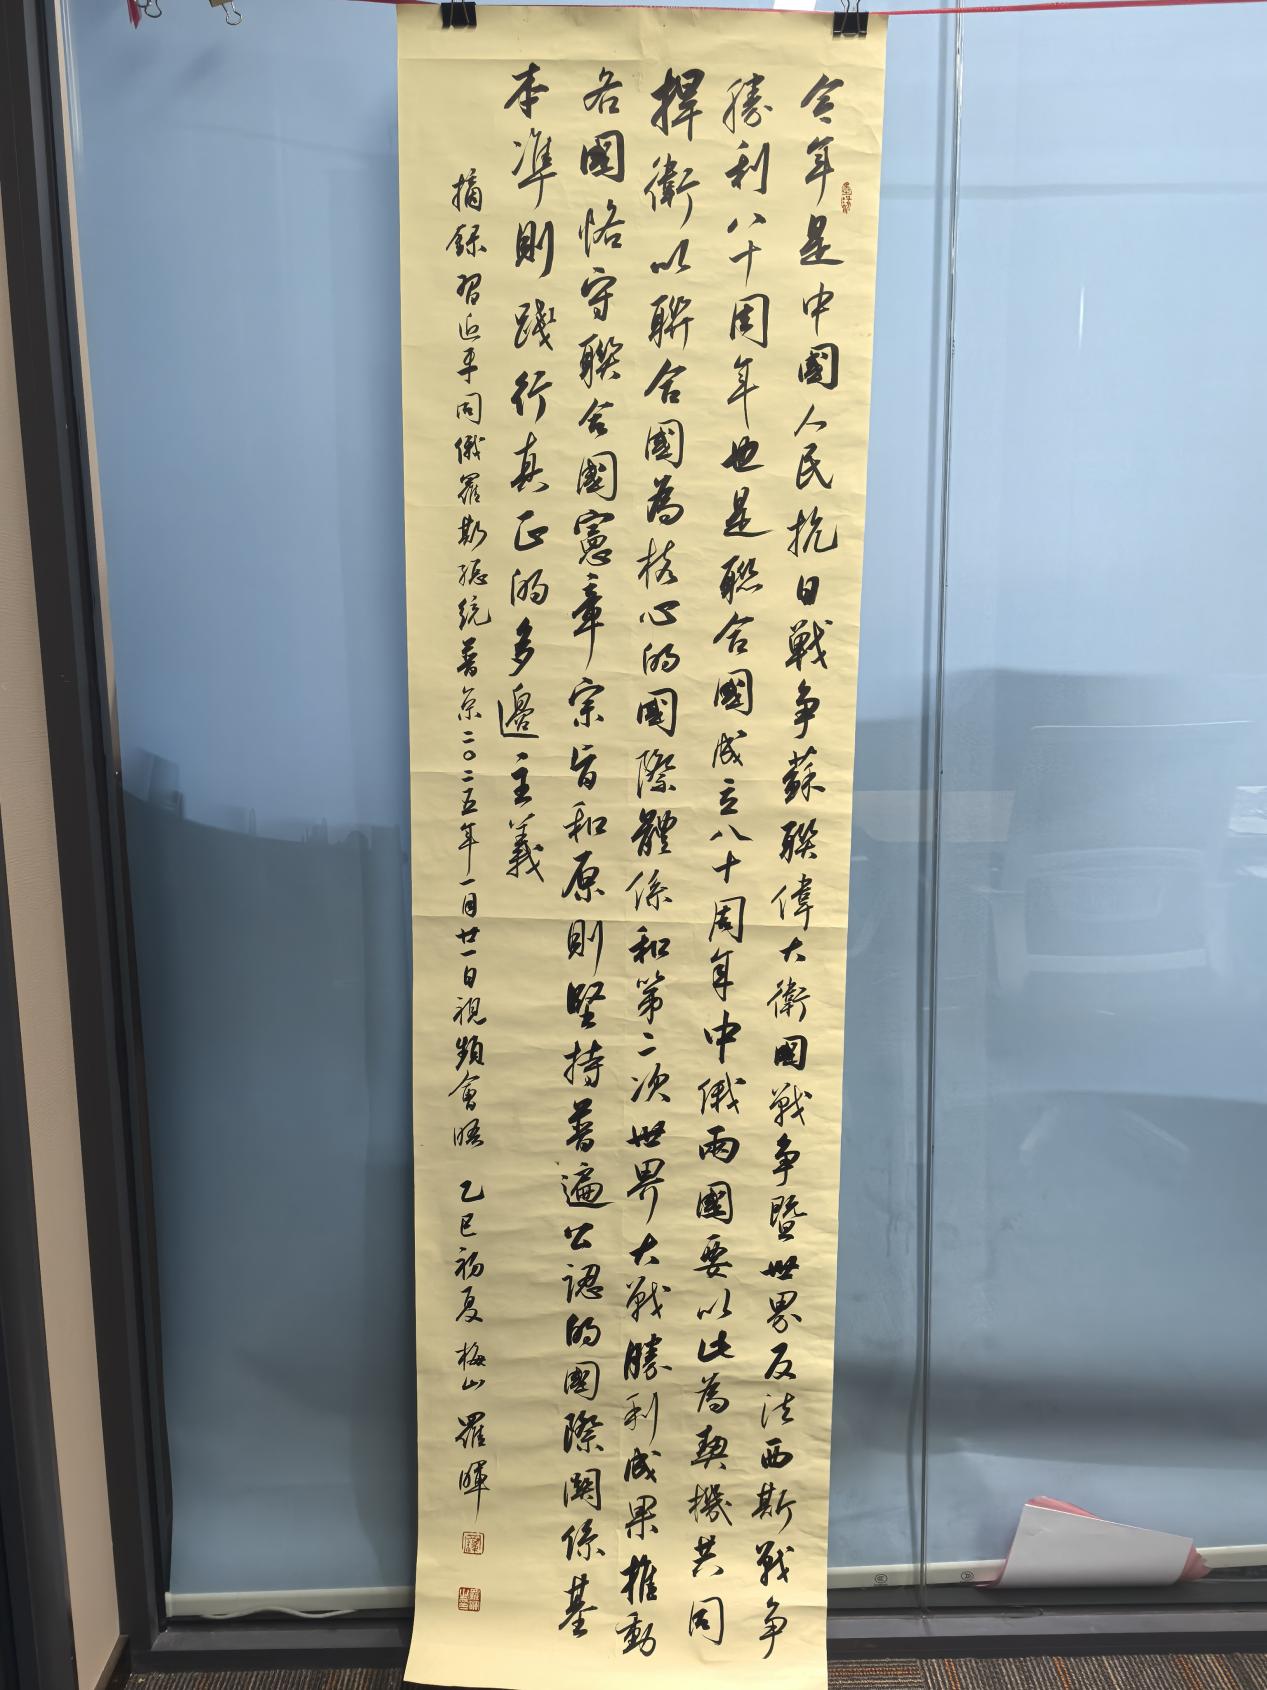 今年是中國人民抗日戰爭蘇聯偉大衛國戰爭暨世界反法西斯戰爭
勝利八十周年也是聯合國成立八十周年中俄兩國要以此為契機共同
捍衛以聯合國為核心的國際體係和第二次世界大戰勝利成果推動
各國恪守聯合國憲章宗旨和原則堅持普遍公認的國際關係基
本準則踐行真正的多邊主義
摘錄習近平同俄羅斯總統普京二〇二五年一月廿一日視頻會晤 乙巳初夏 梅山 羅暉